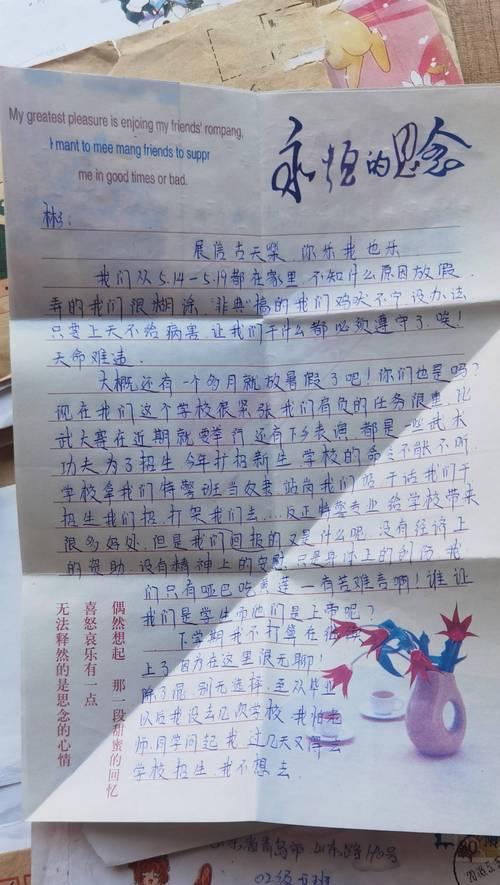 My greatest pleasure is enjoing my friends' rompang,
I mant to mee mang friends to suppr
me in good times or bad.
永恒的思念
彬:
展信吉天琛 你乐我也乐
我们从5.14—5.19都在家里.不知什么原因放假.
弄的我们很糊涂."非典"搞的我们鸡吠不宁.没办法
只要上天不给病害.让我们干什么都必须遵守了.唉!
天命难违.
大概还有一个多月就放暑假了吧!你们也是吗?
现在我们这个学校很紧张我们肩负的任务很重.比
武大赛在近期就要举行还有下乡表演.都是一些武术
功夫为了招生.今年打招新生.学校的命令不能不听.
学校拿我们特警班当奴隶.站岗我们的干活我们干
招生我们招.打架我们去...反正特警专业给学校带来
很多好处.但是我们回报的又是什么呢.没有经济上
的资助.没有精神上的安慰.只是身体上的创伤.我
们只有哑巴吃黄莲——有苦难言啊!谁让
我们是学生而他们是上帝呢?
下学期我不打算在
上了因为在这里很无聊!
除了混.别无选择.至从毕业
以后我没去几次学校.我怕老
师.同学问起我.过几天又得去
学校招生.我不想去.
偶然想起 那一段甜蜜的回忆
喜怒哀乐有一点
无法释然的是思念的心情
省青岛市 山东路
02级